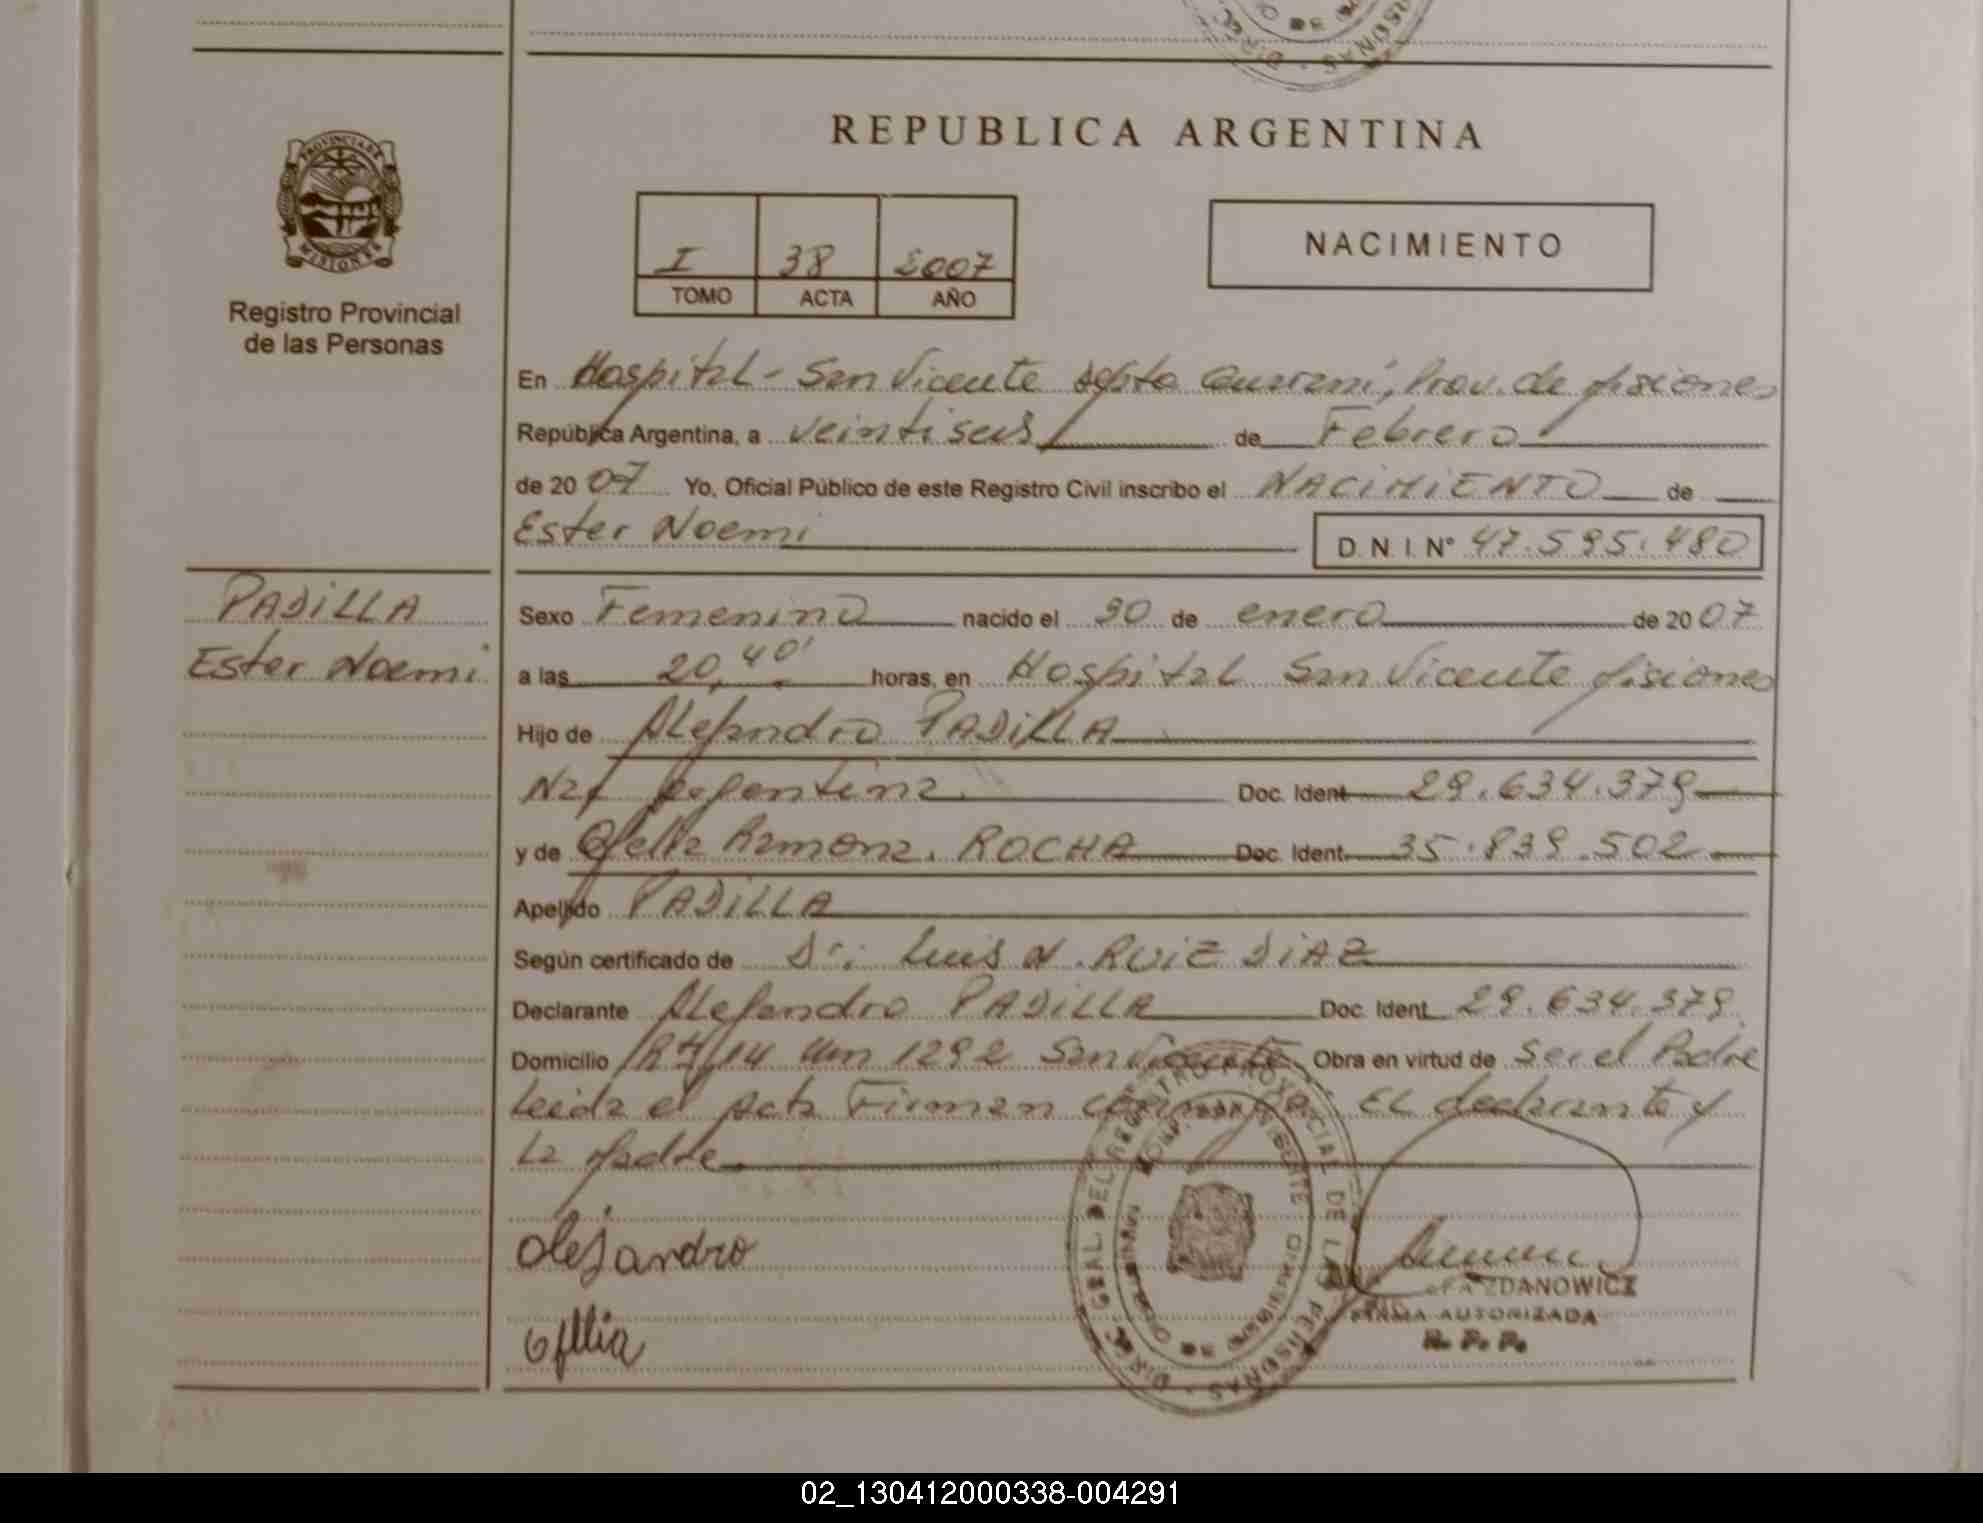 REPUBLICA ARGENTINA
PROVINCIA DE
MISIONES
Registro Provincial
de las Personas
I 38 2007
TOMO ACTA AÑO
NACIMIENTO
En Hospital - San Vicente Dpto Guarani, Prov. de Misiones
República Argentina, a veintiseis de Febrero
de 2007 Yo, Oficial Público de este Registro Civil inscribo el NACIMIENTO de
Ester Noemi D.N.I. Nº 47.595.480
PADILLA
Ester Noemi
Sexo Femenino nacido el 30 de enero de 2007
a las 20,40' horas, en Hospital San Vicente Misiones
Hijo de Alejandro PADILLA
Nac Argentina. Doc. Ident 29.634.379
y de Ofelia Ramona. ROCHA Doc. Ident. 35.839.502
Apellido PADILLA
Según certificado de Dr: Luis N. RUIZ DIAZ
Declarante Alejandro PADILLA Doc. Ident. 29.634.379
Domicilio Rta 14 Km 1292 San Vicente Obra en virtud de Ser el Padre
Leida el Acta Firman EL declarante y
La Madre
Alejandro
ofelia
DIR. GRAL. DEL REGISTRO PROVINCIAL DE LAS PERSONAS
ZDANOWICZ
FIRMA AUTORIZADA
R. P. P.
02_130412000338-004291